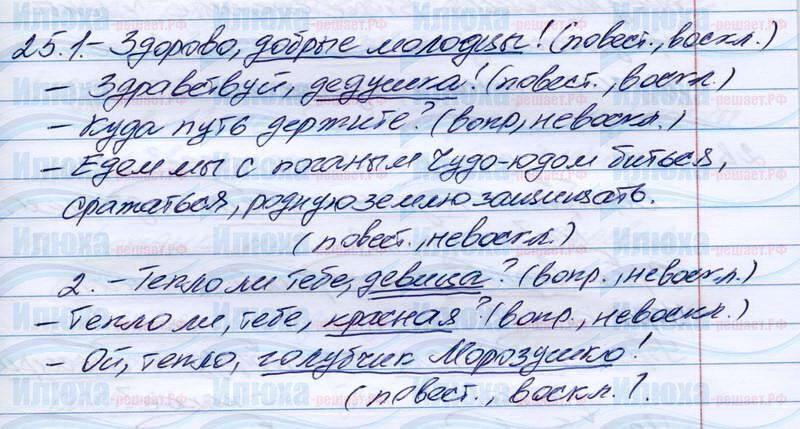 25.1.- Здорово, добрые молодцы! (повест., воскл.)
- Здравствуй, дедушка! (повест., воскл.)
- Куда путь держите? (вопр, невоскл.)
- Едем мы с поганым Чудо-юдом биться,
сражаться, родную землю защищать.
(повест., невоскл.)
2. - Тепло ли тебе, девица? (вопр., невоскл.)
- Тепло ли, тебе, красная? (вопр., невоскл.)
- Ой, тепло, голубчик Морозушко!
(повест., воскл.).
Илюха
-решает.рф